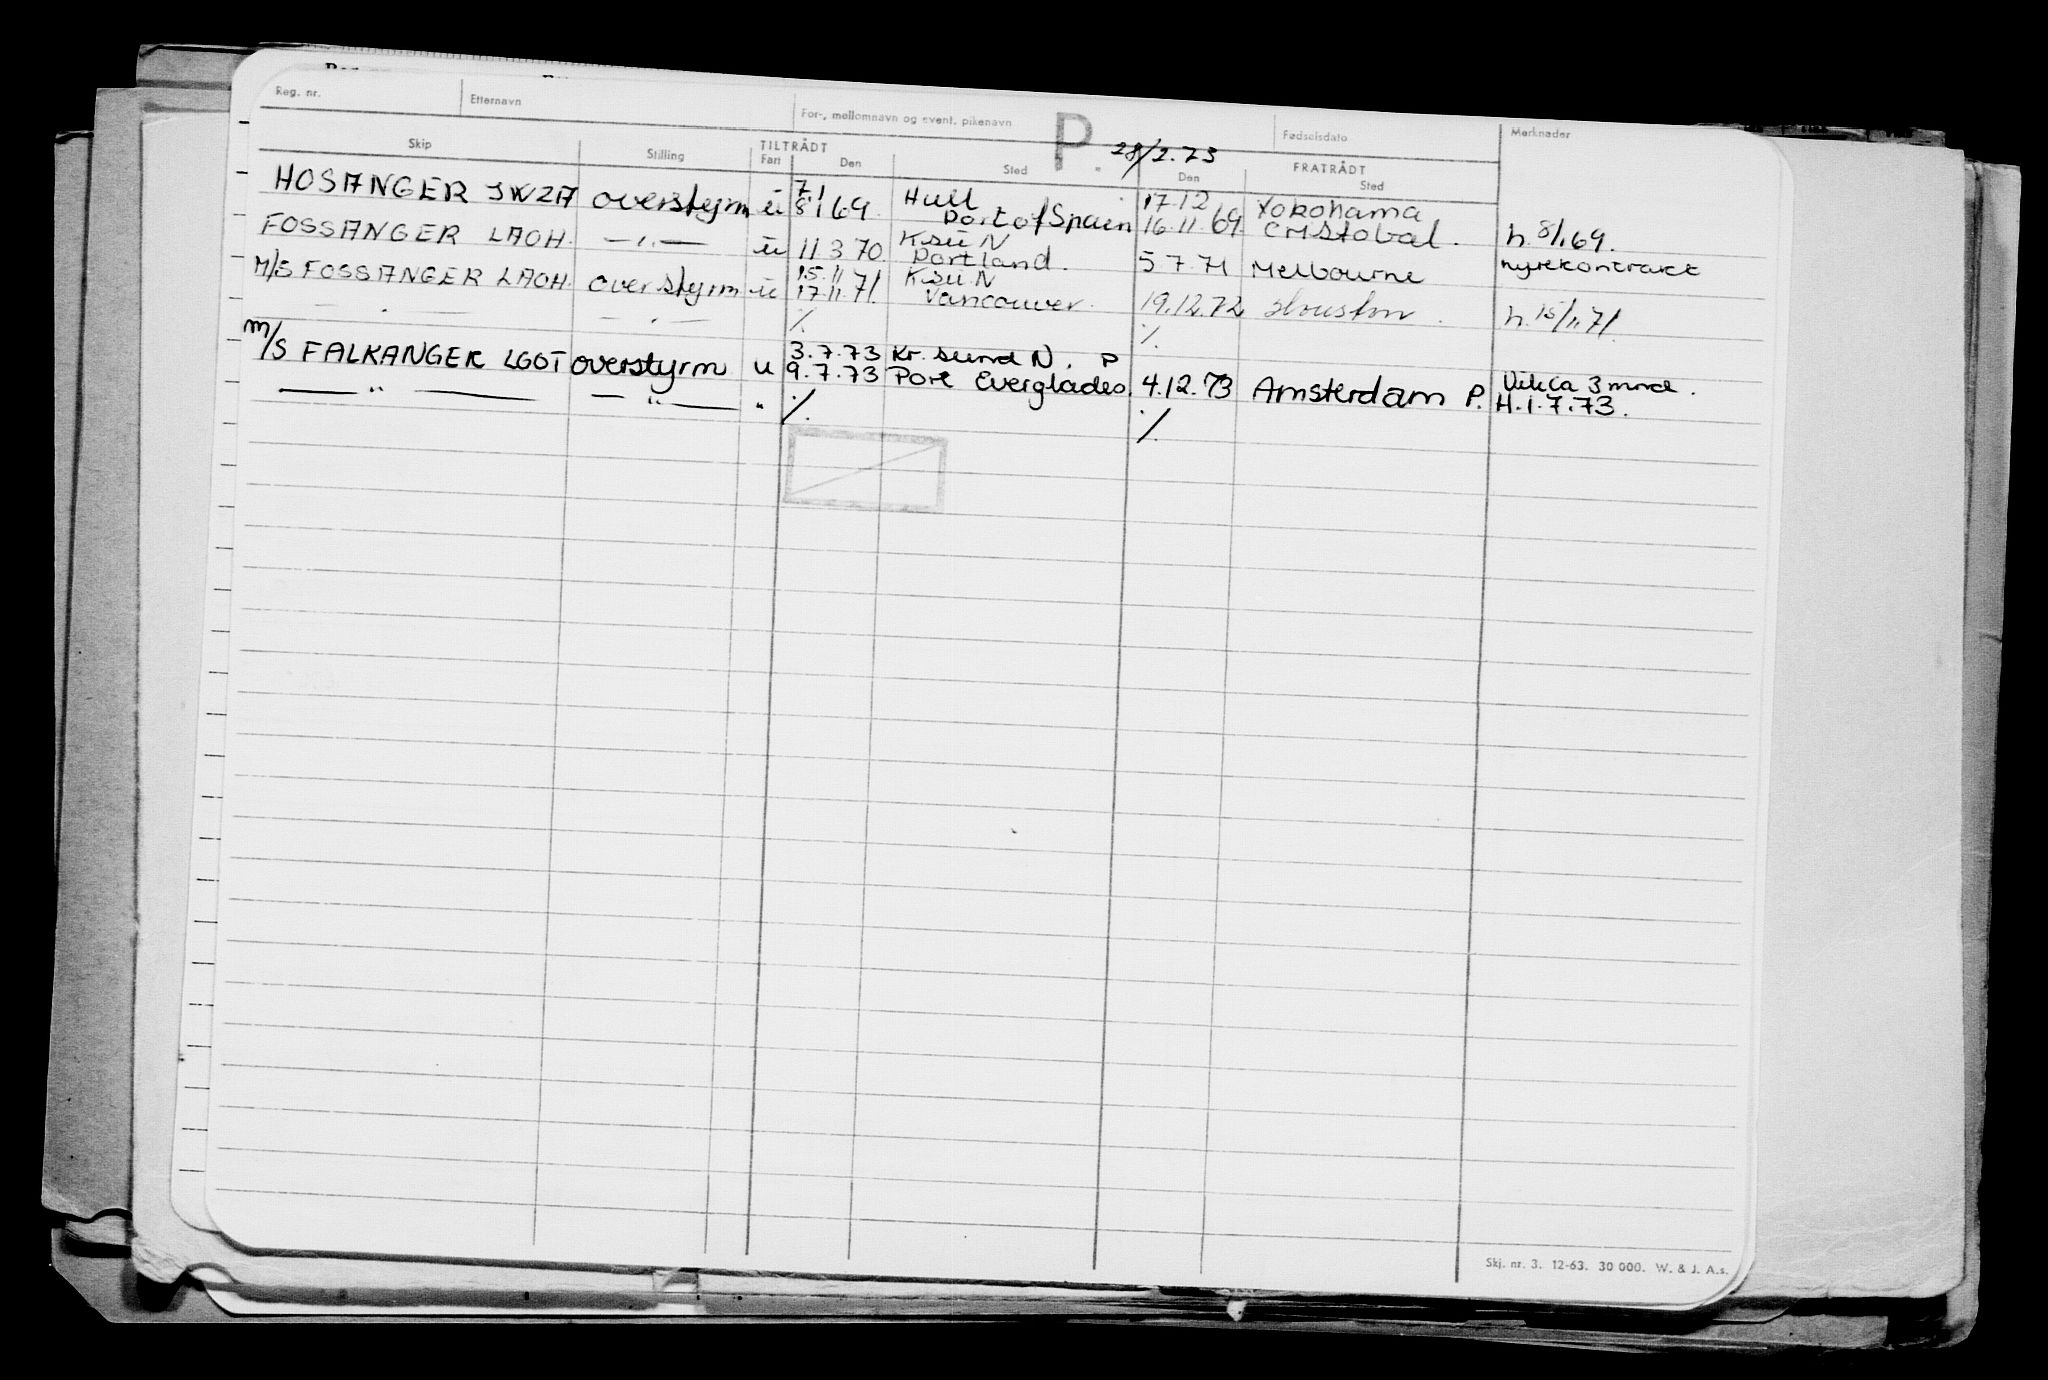 Reg. nr. Etternavn For-, mellomnavn og event. pikenavn P Fødselsdato Merknader
28/2.73
Skip Stilling TILTRÅDT FRATRÅDT
Fart Den Sted Den Sted
7/1 Hull 17.12 Yokohama
HOSANGER JWZA overstyrm ü 8/1 69. Port of Spain 16.11.69 Cristobal. h. 8/1 69.
FOSSANGER LAOH. — " — ü 11 3 70. Ksü N Portland. 5 7.71 Melbourne nyrekontrakt
15.11 Ksü N
M/S FOSSANGER LAOH. overstyrm ü 17.11.71. Vancouver. 19.12.72 Houston. h. 15/11 71.
— " — — " — ./. ./.
3.7.73 Kr. sund N. P
M/S FALKANGER LGOT overstyrm u 9.7.73 Port Everglades. 4.12.73 Amsterdam P. ca 3 mnd.
— " — — " — " ./. ./. H.1.7.73.
Skj. nr. 3. 12-63. 30 000. W. & J. A.s.